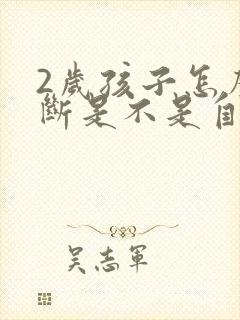 2歲孩子怎
斷是不是自
吴志軍